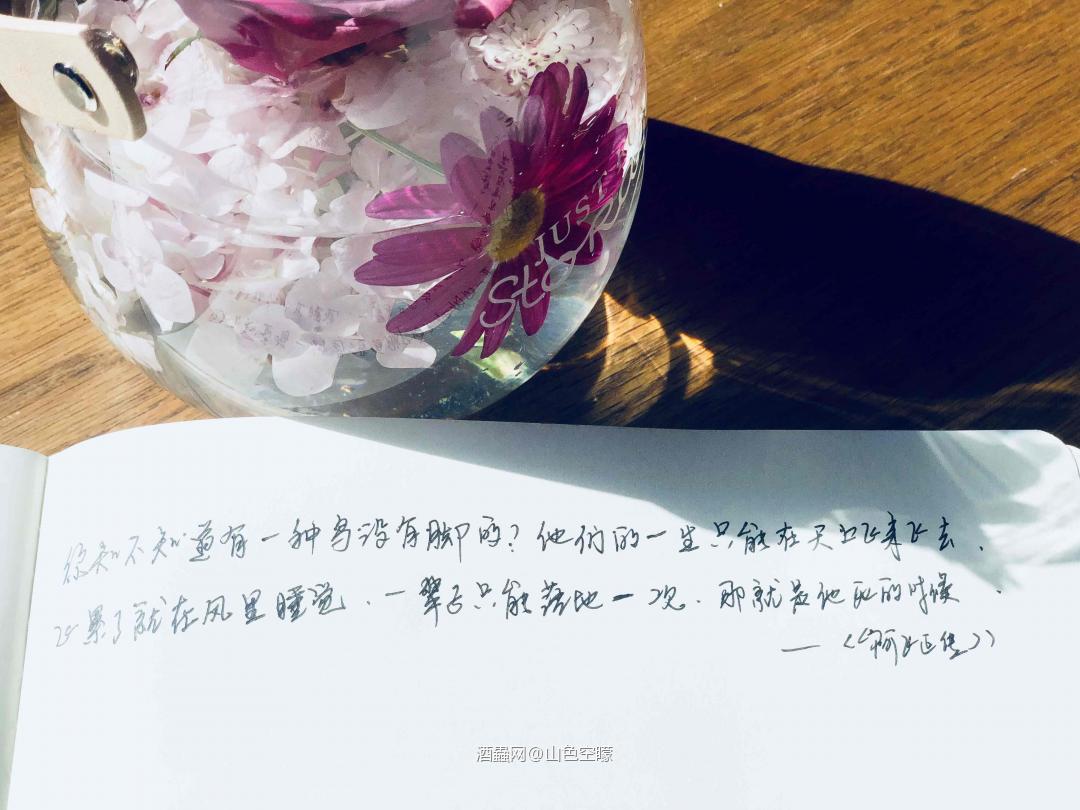 JUST
Sto
你知不知道有一种鸟没有脚的？他们的一生只能在天上飞来飞去．
飞累了就在风里睡觉．一辈子只能落地一次．那就是他死的时候．
—《阿飞正传》
酒蠱网@山色空曚